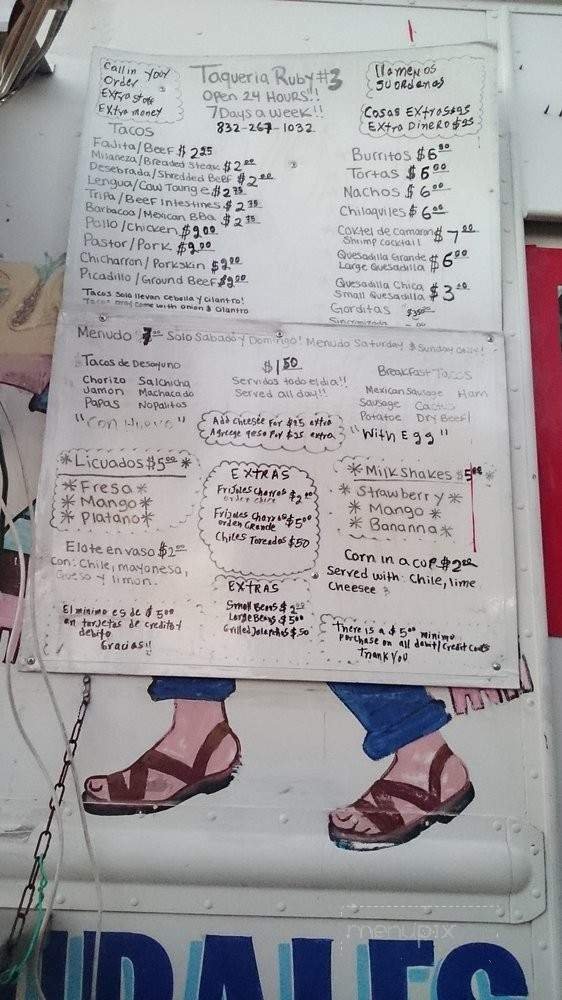 Call in Your
Order
Extra stuff
Extra money
Taqueria Ruby #3
Open 24 Hours!!
7 Days a week!!
832-267-1032
llamenos
su orden
Cosas Extras
Extra Dinero
Tacos
Fajita/Beef $2 25
Milaneza/Breaded Steak $2 00
Desebrada/Shredded Beef $2 00
Lengua/Cow Tounge $2 75
Tripa/Beef Intestines $2 75
Barbacoa/Mexican BBQ $2 75
Pollo/Chicken $2 00
Pastor/Pork $2 00
Chicharron/Porkskin $2 00
Picadillo/Ground Beef $2 00
Tacos Solo llevan cebolla y cilantro!
Tacos only come with Onion & Cilantro
Burritos $6 00
Tortas $6 00
Nachos $6 00
Chilaquiles $6 00
Coktel de camaron $7 00
Shrimp cocktail
Quesadilla Grande $6 00
Large Quesadilla
Quesadilla Chica $3
Small Quesadilla
Gorditas
Sincronizada
Menudo 7 00 Solo Sabado y Domingo! Menudo Saturday & Sunday only!
Tacos de Desayuno
Chorizo Salchicha
Jamon Machacado
Papas Nopalitos
"Con Huevo"
$1 50
Servidos todo el dia!!
Served all day!!
Add cheese for $25 extra
Agrege qeso por $25 extra
Breakfast Tacos
Mexican Sausage Ham
Sausage Cactus
Potatoe Dry Beef
"With Egg"
*Licuados $5 00 *
*Fresa*
*Mango*
*Platano*
Extras
Frijoles Charros $2 00
orden chica
Frijoles Charros $5 00
orden Grande
Chiles Toreados $50
*Milkshakes $5 00 *
*Strawberry*
*Mango*
*Bananna*
Elote en vaso $2 00
Con: Chile, mayonesa,
Queso y limon.
Corn in a cup $2 00
Served with: Chile, lime
Cheesee
El minimo es de $5 00
en tarjetas de credito y
debito
Gracias!!
Extras
Small Beans $2 00
Large Beans $5 00
Grilled Jalapeños $50
There is a $5 00 minimo
purchase on all debit/credit cards
Thank You
menupix